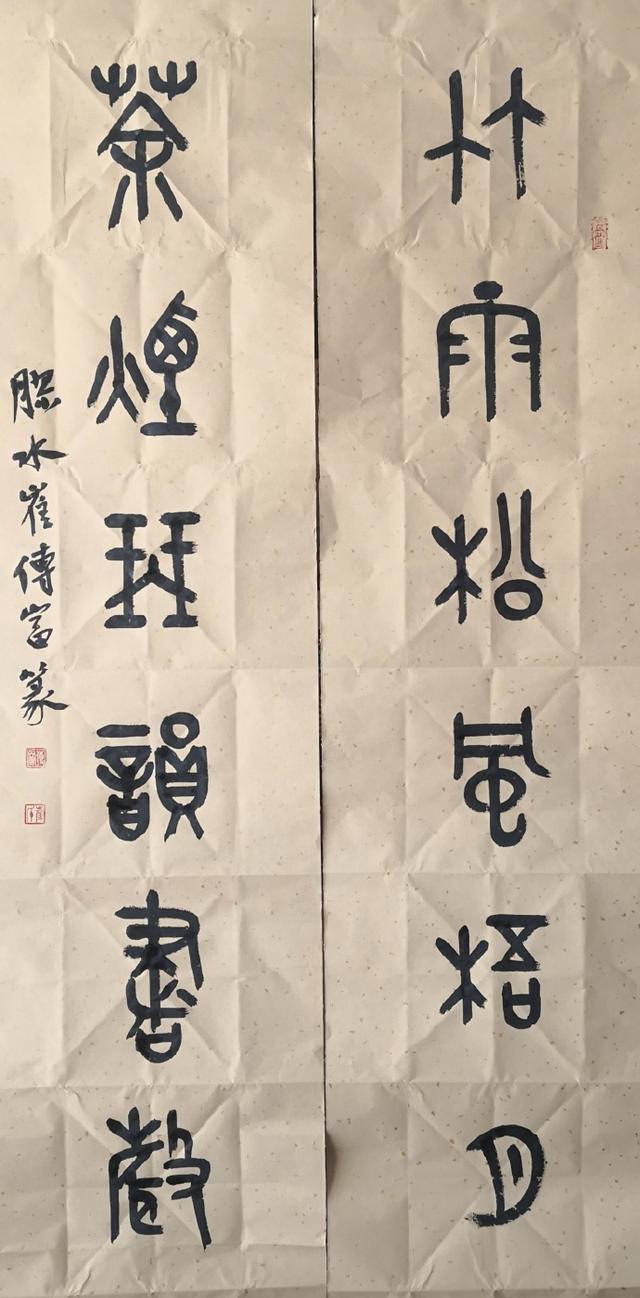 竹雨松風梧月
茶煙琹韻書聲
膠水崔傳富篆